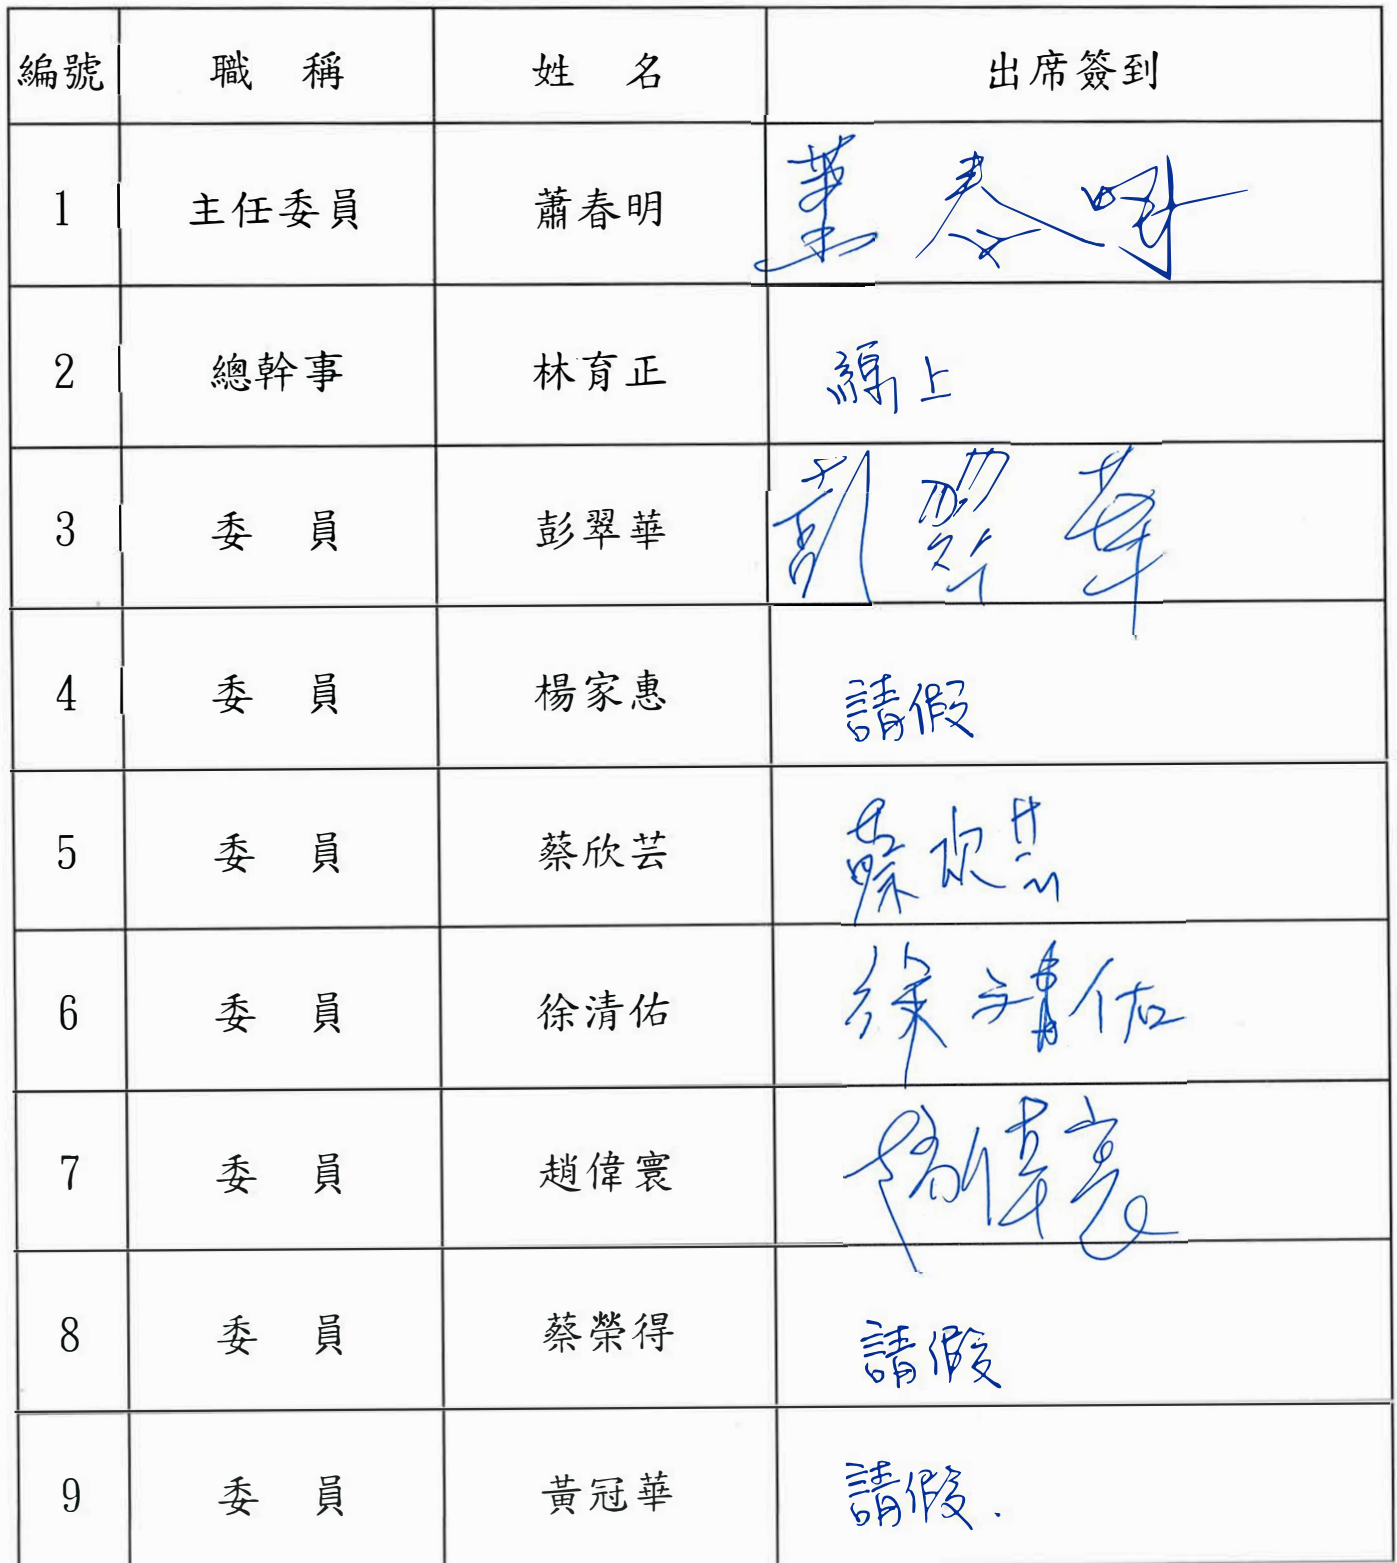 編號 職 稱 姓 名 出席簽到
1 主任委員 蕭春明 蕭春明
2 總幹事 林育正 線上
3 委 員 彭翠華 彭翠華
4 委 員 楊家惠 請假
5 委 員 蔡欣芸 蔡欣芸
6 委 員 徐清佑 徐清佑
7 委 員 趙偉寰 趙偉寰
8 委 員 蔡榮得 請假
9 委 員 黃冠華 請假.